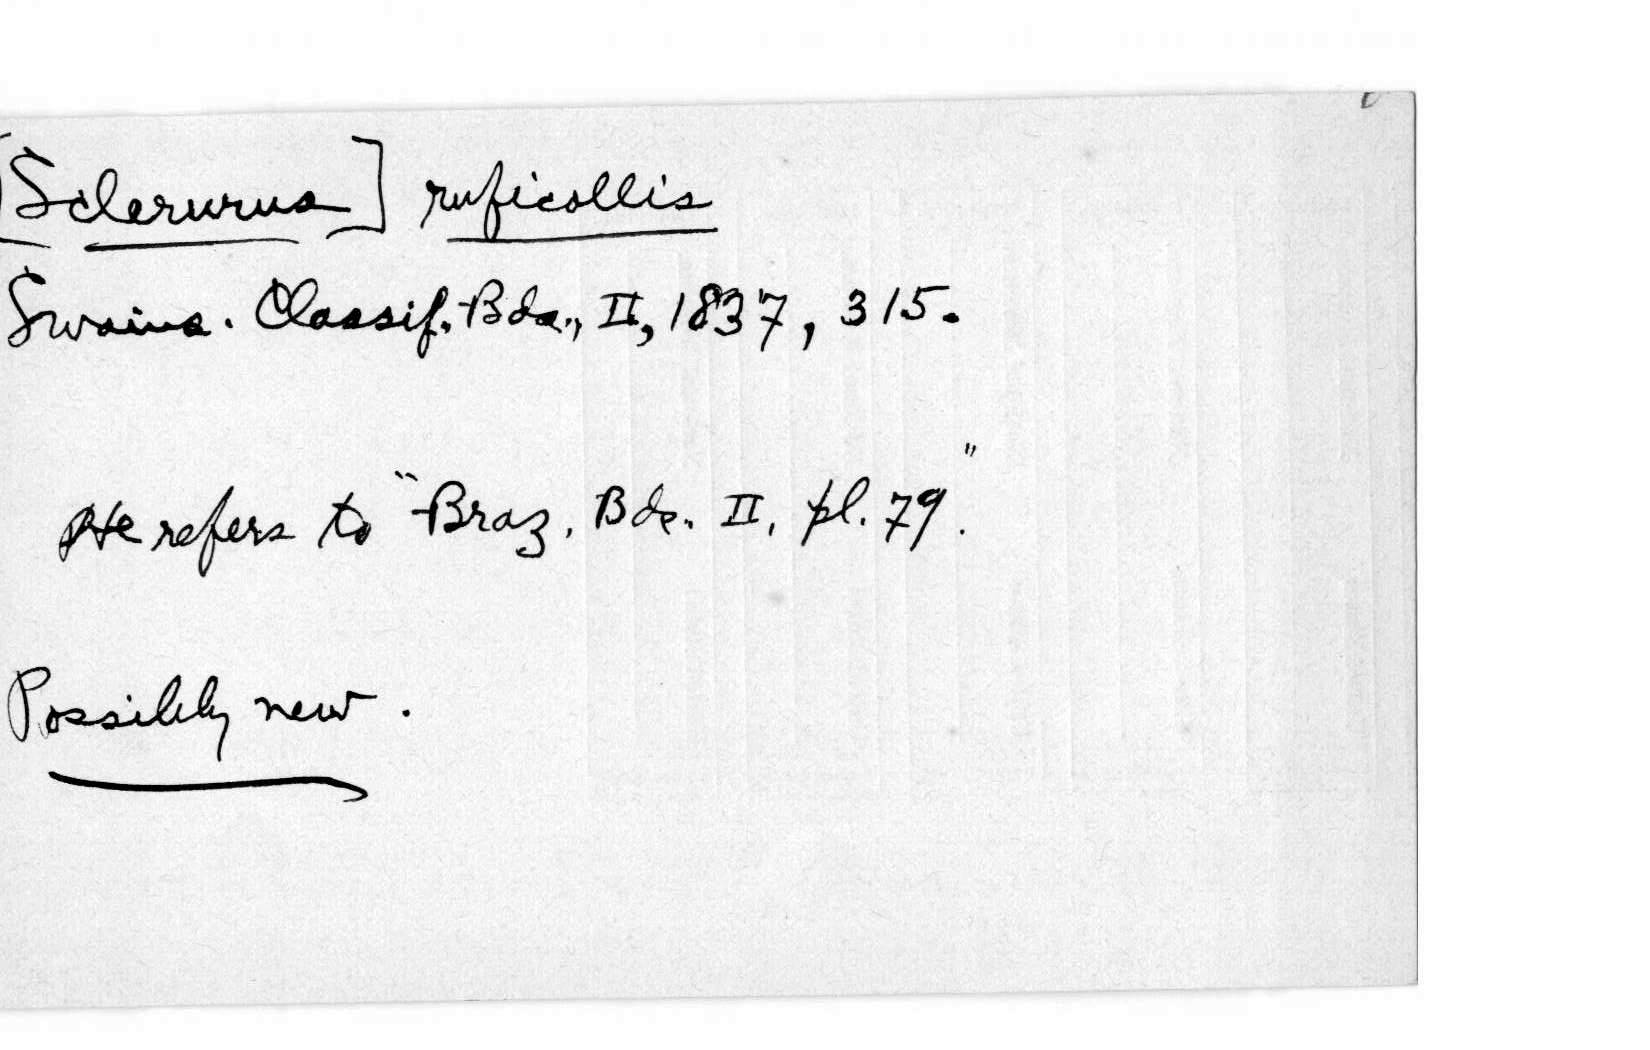 [Sclerurus] ruficollis
Swains. Classif. Bds., II, 1837, 315.
He refers to "Braz. Bds. II, pl. 79."
Possibly new.